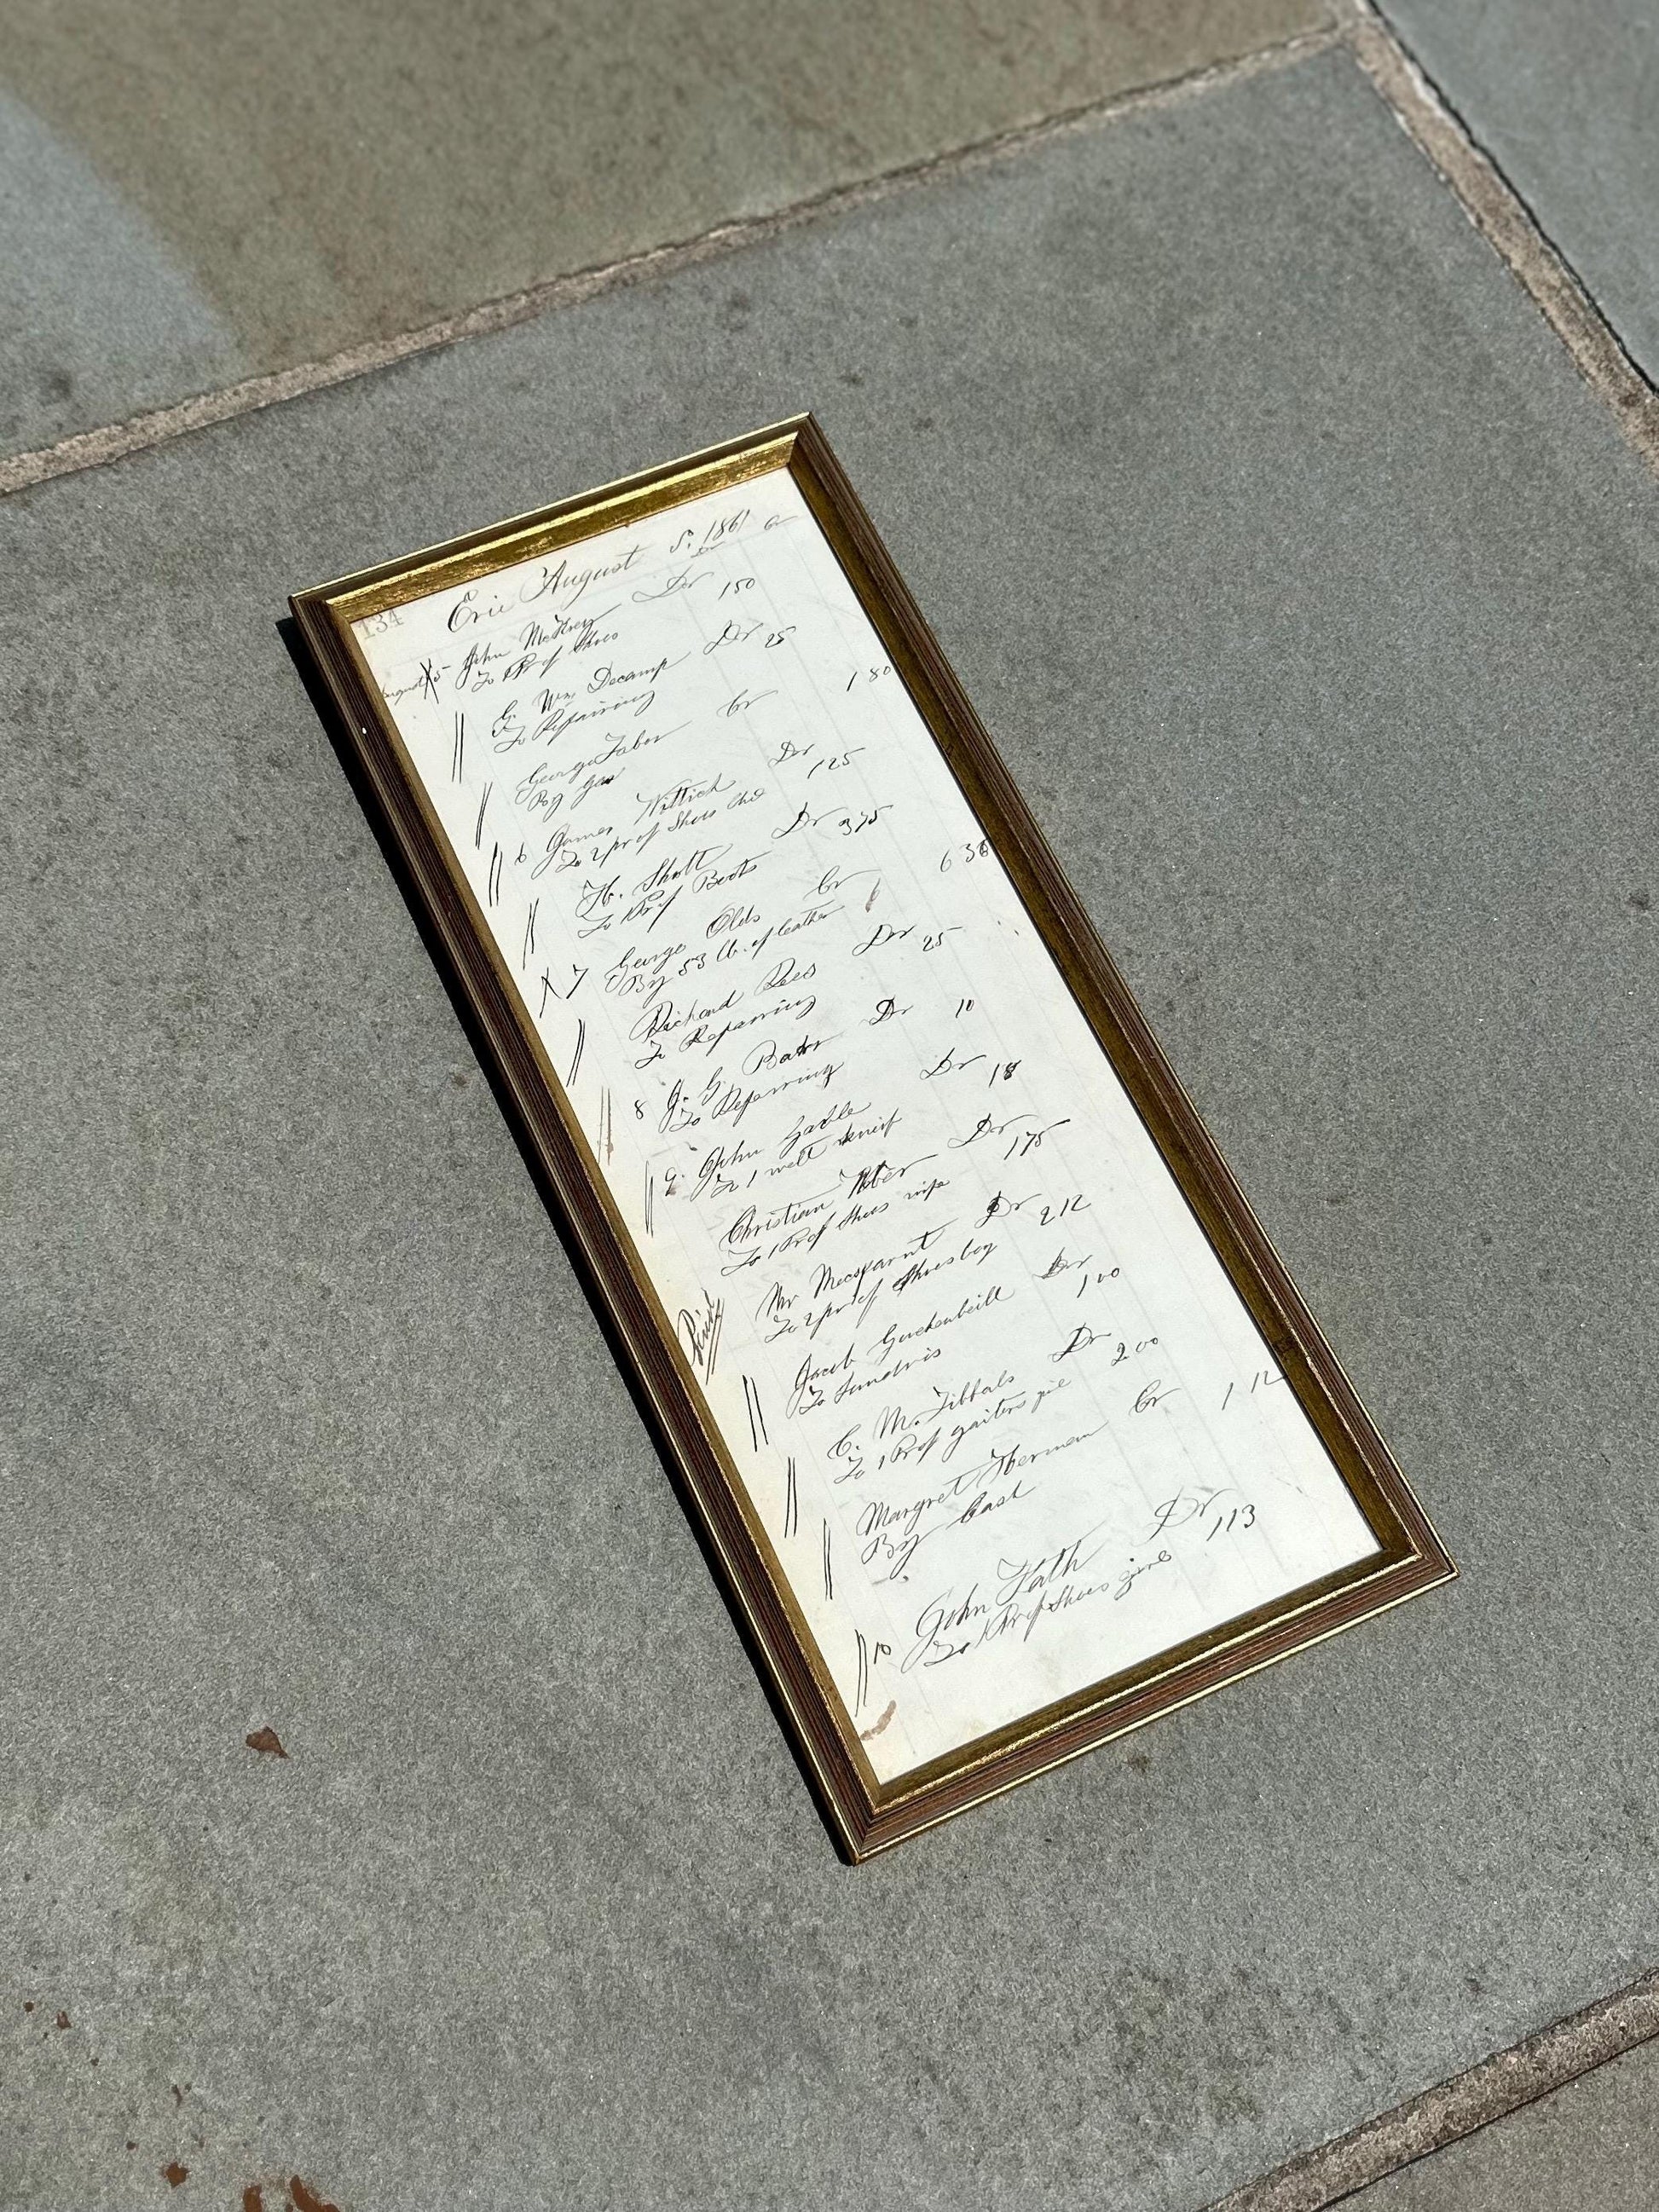 134
Erie August 5. 1861
Dr Cr
August 5 John Dr 150
To 1 Pr of Shoes
G. Wm Decamp Dr 25
To Repairing
George Tabor Cr 1 80
By
6 James Wittich Dr
To 2 pr of Shoes Chd 125
H. Shott Dr 375
To 1 Pr of Boots
7 George Olds Cr 6 36
By 53 lb. of leather
Richard Rees Dr 25
To Repairing
8 J. G. Dr 10
To Repairing
9. John Gable Dr 18
To 1 welt
Christian Dr 175
To 1 Pr of Shoes wife
Mr Dr 212
To 2 pr of Shoes boy
Paid
Jacob Dr 100
To Sundries
C. M. Tibbals Dr 200
To 1 Pr of gaiters
Margret Herman Cr 1 12
By Cash
10 John Fath Dr 113
To 1 Pr of Shoes girl